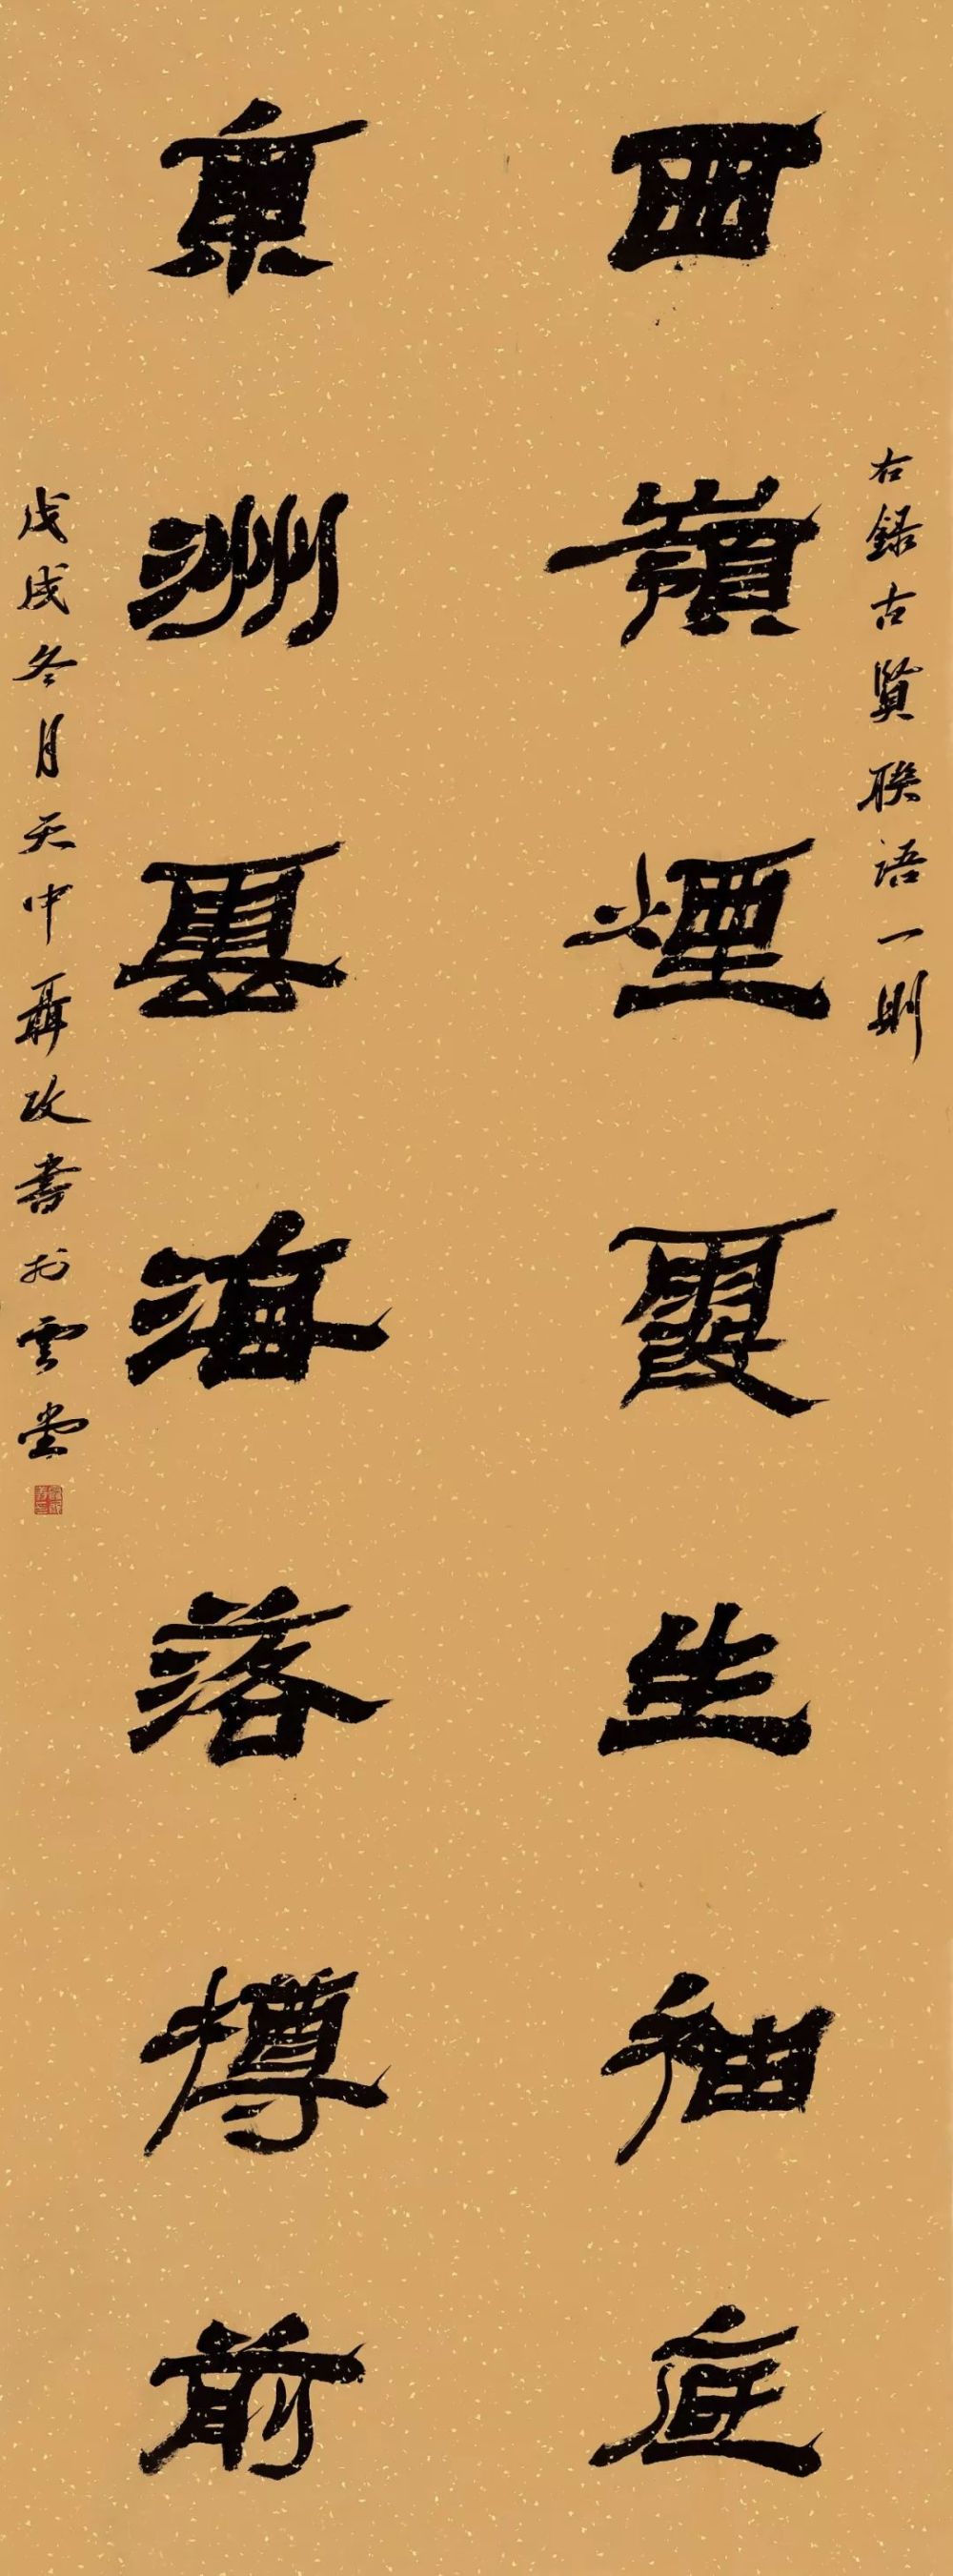 右録古賢聯語一則
西嶺煙霞生袖底
東洲雲海落樽前
戊戌冬月天中聶攻書於雲堂